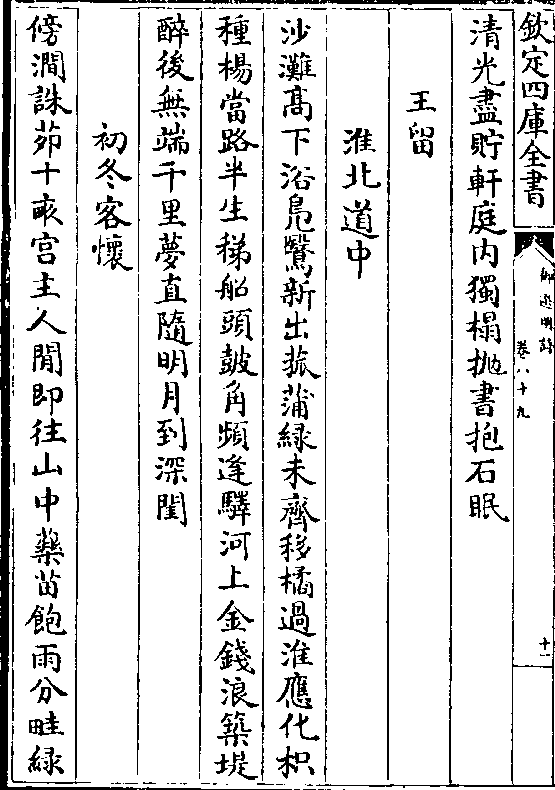 欽定四庫全書
御選明詩
卷八十九
十一
清光盡貯軒庭内獨榻拋書抱石眠
王留
淮北道中
沙灘髙下浴鳬鷖新出菰蒲緑未齊移橘過淮應化枳
種楊當路半生稊船頭鼓角頻逢驛河上金錢浪築堤
醉後無端千里夢直隨明月到深閨
初冬客懷
傍澗誅茆十畝宫主人閒即往山中藥苗飽雨分畦緑